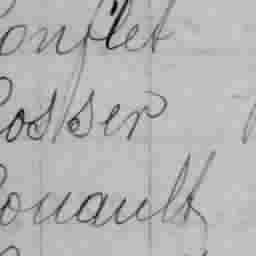 Conflet
Cosser
Couault